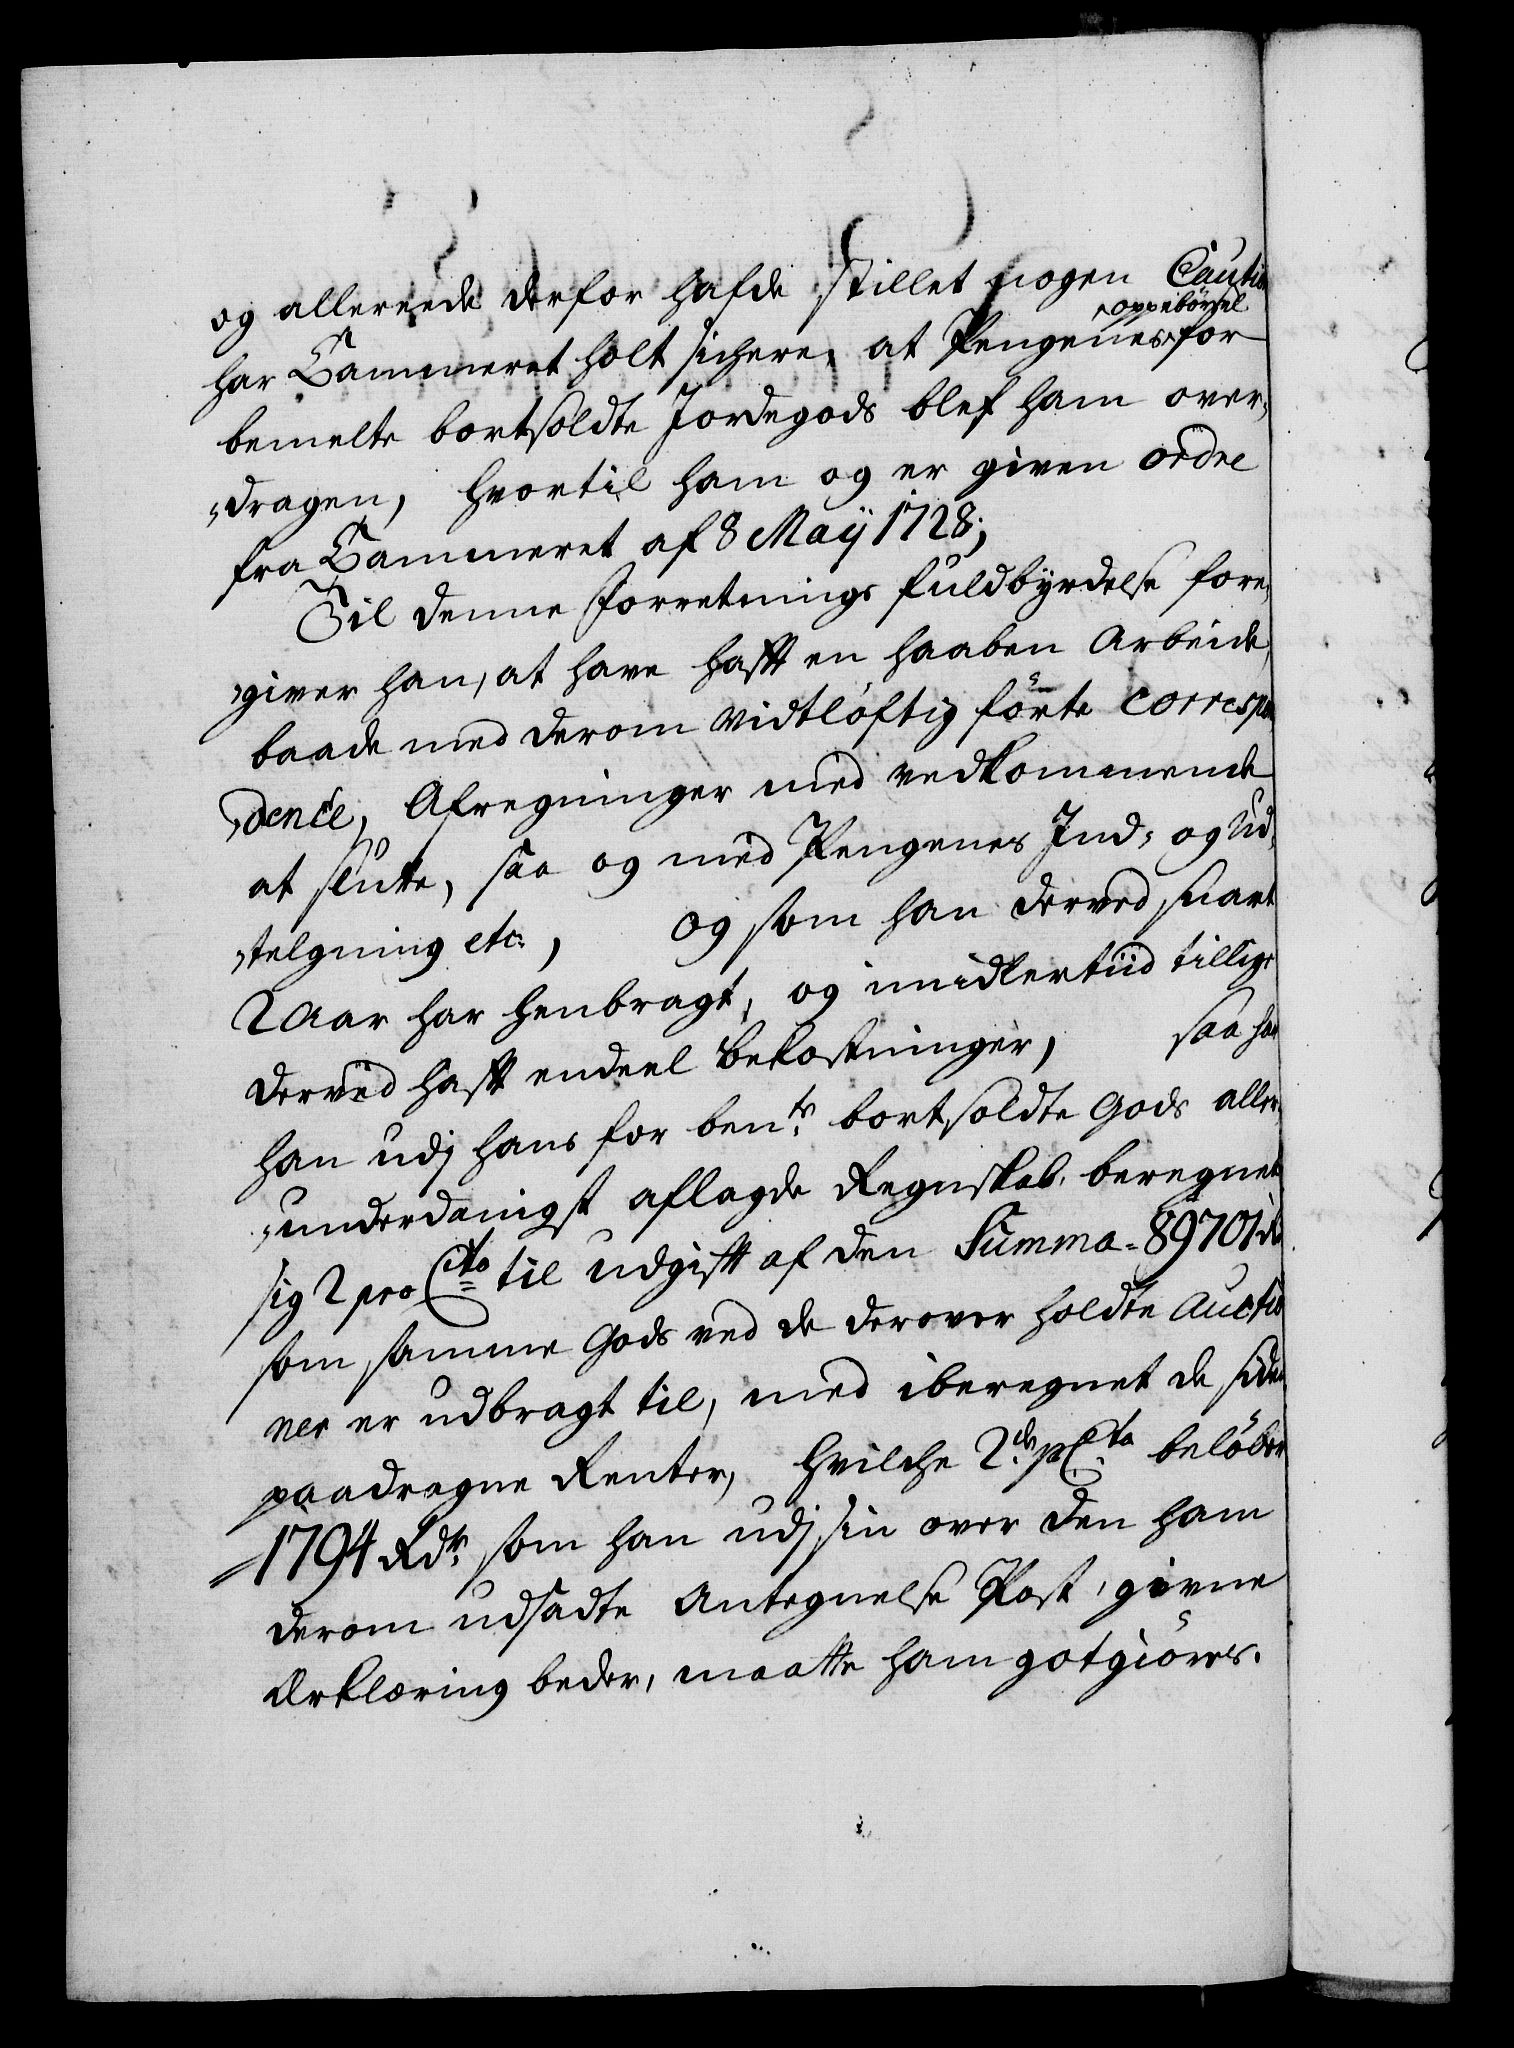 og allereede derfor hafde stillet nogen Cautio
har Cammeret holt sichere, at Pengenes oppebörsel for
bemelte bortsoldte Jordegods blef ham over„
„dragen, hvortil ham og er given ordre
fra Cammeret af 8 Maÿ 1728;
Til denne Forretnings fuldbÿrdelse fore„
„giver han, at have hafft en haaben Arbeide,
baade med derom vidtlöftig förte Corresp
„dence, Afregninger med vedkommende
at slutte, saa og med Pengenes Ind„ og Ud„
„telgning etc:, og som han derved snart
2 Aar har henbragt, og imidlertiid tillige
derved hafft endeel Bekostninger, saa har
han udj hans for bente bortsoldte Gods aller„
„underdanigst aflagde Regnskab, beregnet
sig 2 pro Cto til udgifft af den Summa = 89701 R
som samme Gods ved de derover holdte Auctio
ner er udbragt til, med iberegnet de siden
paadragne Renter, hvilche 2de p Cto belöber
1794 Rdr som han udj sin over den ham
derom udsadte Antegnelse Post, givne
Erklæring beder, maatte ham gotgiöres.